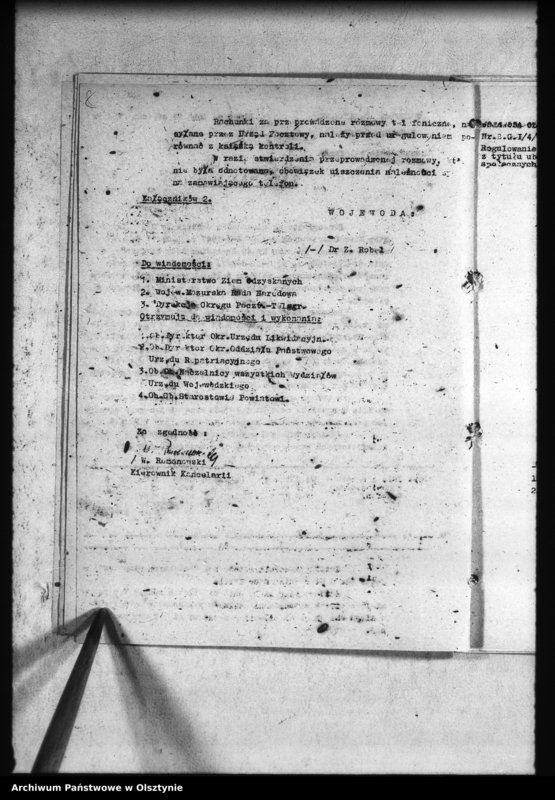 8
Rachunki za przeprowadzone rozmowy telefoniczne,
syłane przez Urząd Pocztowy, należy przed uregulowaniem po-
równać z książką kontroli.
W razie stwierdzenia przeprowadzonej rozmowy,
nie była odnotowana, obowiązek uiszczenia należności
na zamawiającego telefon.
Załączników 2.
WOJEWODA:
/-/ Dr Z. Robel
Do wiadomości:
1. Ministerstwo Ziem Odzyskanych
2. Wojew. Mazurska Rada Narodowa
3. Dyrekcja Okręgu Poczt.-Telegr.
Otrzymują do wiadomości i wykonania:
1.Ob.Dyrektor Okr.Urzędu Likwidacyjn.
2.Ob.Dyrektor Okr.Oddziału Państwowego
Urzędu Repatriacyjnego
3.Ob.Ob.Naczelnicy wszystkich Wydziałów
Urzędu Wojewódzkiego
4.Ob.Ob.Starostowie Powiatowi.
Za zgodność:
/ W. Romanowski /
Kierownik Kancelarii
Regulowanie
z tytułu
społecznych
Archiwum Państwowe w Olsztynie